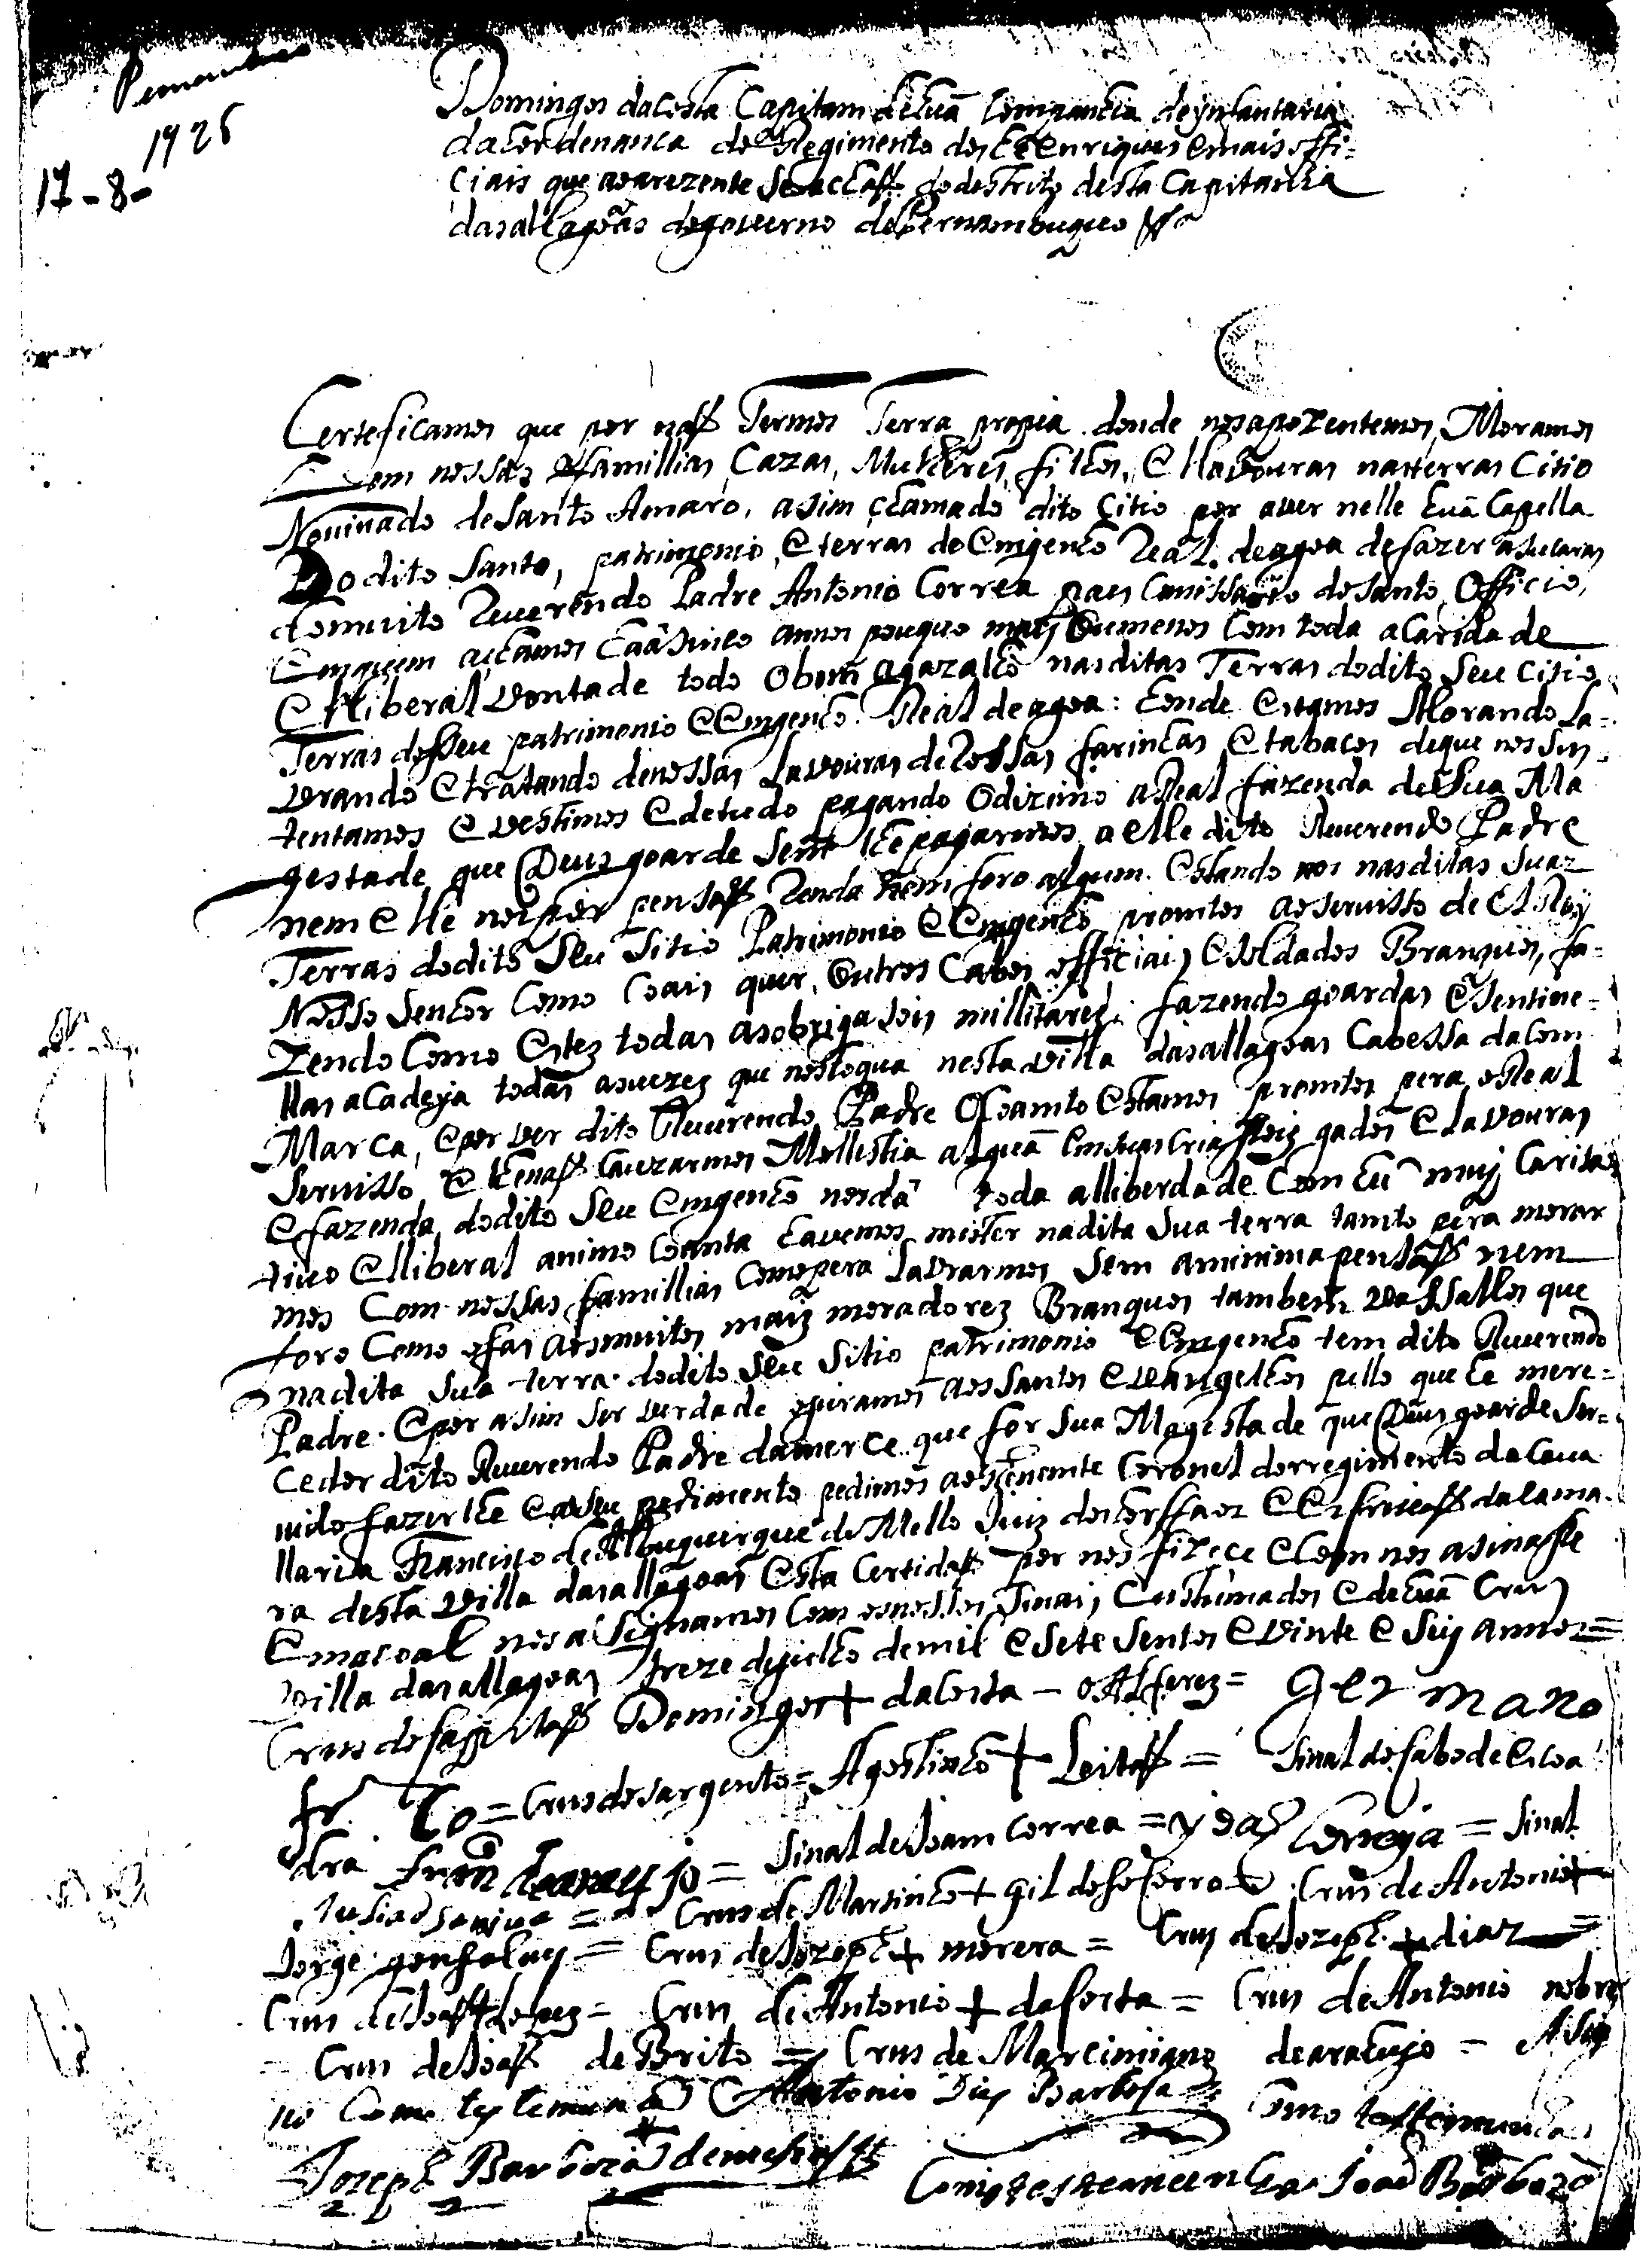 Pernambuco
1726
17-8-
Domingos dacosta Capitam de huã Companhia de ynfantaria
da hordenansa do Regimento dos Henriques e mais offi=
ciais que ao prezente se achaõ do destrito desta Capitania
das allagoãs do governo de Pernambuquo
Certeficamos que por naõ Termos Terra propia donde nos apozentemos, Moramos
Com nossas famillias, Cazas, Mulheres, filhos, e llavouras nas terras Citio
Nominado de Santo Amaro, asim chamado dito Citio por aver nelle huã Capella
Do dito Santo, patrimonio, e terras do emgenho Real de agoa de fazer asucaras
do muito Reverendo Padre Antonio Correa paes Comissario do santo Officio,
Em quem achamos haa sinco annos pouquo mais ou menos Com toda a Caridade
e lliberal vontade todo o bom agazalho nas ditas Terras do dito Seu Citio
Terras do Seu patrimonio e Emgenho Real de agoa: honde estamos Morando La=
vrando e tratando de nossas Lavouras de Rossas farinhas e tabacos de que nos sus
tentamos e vestimos e de tudo pagando o dizimo a Real fazenda de Sua Ma
gestade que Deus goarde sem lhe pagarmos a elle dito Reverendo Padre
nem elle nos por pensaõ Renda nem foro algum. Estando nos nas ditas Suaz
Terras do dito Seu Sitio Patrimonio e Emgenho promtos ao servisso de El Rey
Nosso Senhor Como Coais quer outros Cabos officiais e Soldados Branquos, fa=
zendo Como estes todas as obrigasois millitares; fazendo goardas e Sentine=
llas a Cadeya todas as vezes que nos toqua nesta villa das allagoas Cabessa da Com
Marca, e por ver dito Reverendo Padre o Coamto Estamos promtos pera o Real
Servisso e lhe naõ Cauzarmos Mollestia alguã em suas Criasois gados e Lavouras
e fazenda do dito Seu emgenho nos dá toda a lliberdade Com hũ muy Carita
tivo e lliberal animo Coanta havemos mister na dita Sua terra tamto pera morar
mos Com nossas famillias Como pera Lavrarmos Sem a minima pensaõ nem
foro Como o fas aos muitos mais moradores Branquos tambem Vassallos que
na dita Sua terra do dito Seu Sitio patrimonio e Emgenho tem dito Reverendo
Padre. E por asim ser verdade o juramos aos Santos Evangelhos pello que he mere=
cedor dito Reverendo Padre da merce que for Sua Magestade que Deus goarde Ser=
vido fazer lhe e a Seu pedimento pedimos ao Thenente Coronel do rregimento da Cava
llaria Francisco de Albuquerque de Mello Juiz dos horffaos e Escrivaõ da Cama
ra desta villa das allagoas Esta Certidaõ por nos fizece e Com nos asinasse
Em o coal nos aSignamos Com os nossos Sinais Custumados e de huã Crus
villa das allagoas treze de julho de mil e sete sentos e vinte e seis annos=
Crus do Cappitaõ Domingos + da Costa - o Alferez = Germano
fr. Co = Crus do Sargento = Agostinho + Leitaõ = Sinal do Cabo de Escoa
dra fran de araujo = Sinal de Joam Correa = y daõ Correya = Sinal
= Crus de Martinho + Gil = Crus de Antonio +
Jorge gonsalves = Crus de Jozeph + morera = Crus de Jozeph + diaz =
Crus de Joaõ + Lopez = Crus de Antonio + da Costa = Crus de Antonio nobre
= Crus de Joaõ de Brito = Crus de Marcimiano de araujo = Asig
no Como testemunha Antonio Dias Barbosa = Como testemunha
Jozeph Barboza Como testemunha Joaõ Barboza